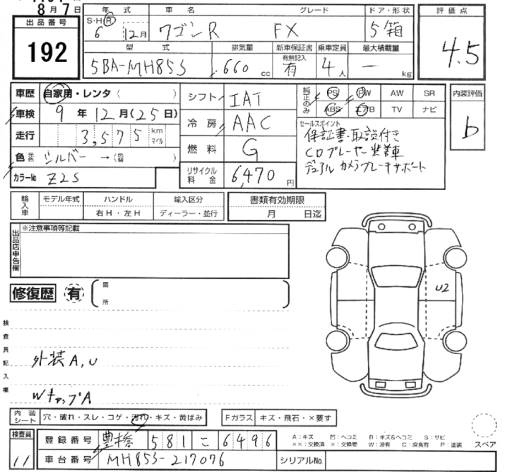 8月7日
出品番号 192
年式 車名 グレード ドア・形状 評価点
S・H・R 6年 12月 ワゴンR FX 5箱 4.5
型式 排気量 新車保証書 乗車定員 最大積載量
有無記入
5BA-MH85S 660cc 有 4人 ― kg
車歴 自家用・レンタ( ) シフト IAT 純正のみ PS PW AW SR 内装評価
ABS エアB TV ナビ b
車検 9年12月(25日) 冷房 AAC セールスポイント
保証書・取説付き
走行 3,575 km マイル 燃料 G CDプレーヤー装着車
デュアルカメラブレーキサポート
色 シルバー→( ) リサイクル料金 6,470円
カラーNo Z2S
輸入車 モデル年式 ハンドル 輸入区分 書類有効期限
右H・左H ディーラー・並行 月 日迄
出品店申告欄 ※注意事項等記載
修復歴 有 箇所
U2
検査員記入欄
外装A,U
WキップA
内装シート 穴・破れ・スレ・コゲ・汚れ・キズ・黄ばみ Fガラス キズ・飛石・×要す
検査員 11 登録番号 豊橋 581 こ 6496
A:キズ U:ヘコミ B:キズ&ヘコミ S:サビ
スペア
車台番号 MH85S-217076 シリアルNo